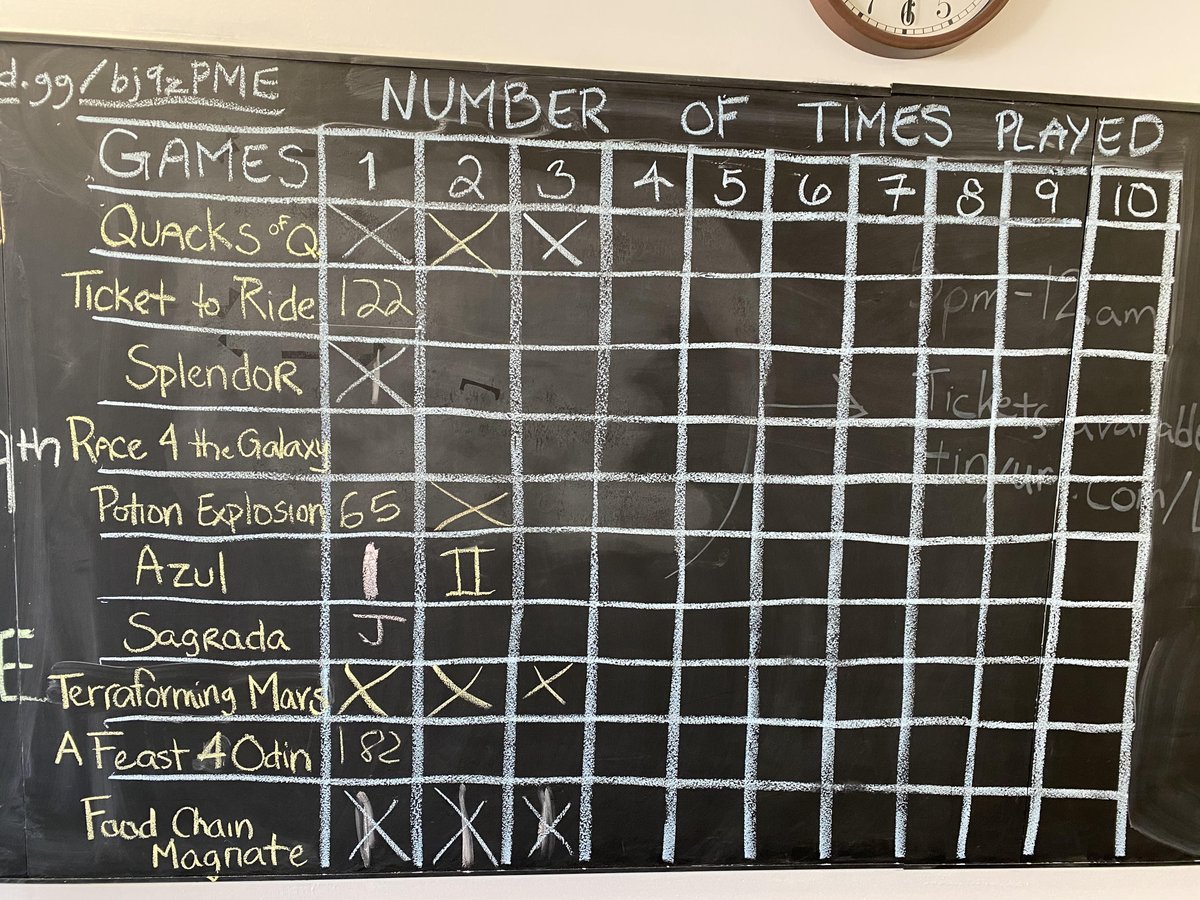 d.gg/bj9zPME
NUMBER OF TIMES PLAYED
GAMES 1 2 3 4 5 6 7 8 9 10
QUACKS OF Q X X X
Ticket to Ride 122
SplendoR X
Race 4 the Galaxy
Potion Explosion 65 X
Azul I II
Sagrada J
Terraforming Mars X X X
A Feast 4 Odin 182
Food Chain
Magnate X X X
pm-12am
Tickets available
tinyur .com/
th
E
7 6 5